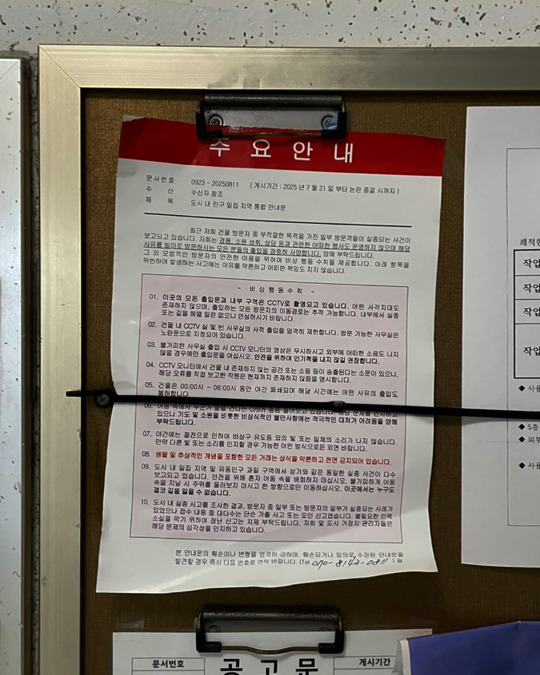 주요안내
문서번호 0923 - 20250811 (게시기간 : 2025 년 7 월 21 일 부터 논란 종결 시까지)
수 신 수신자 참조
제 목 도시 내 인구 밀집 지역 통합 안내문
최근 저희 건물 방문자 중 부적절한 목적을 가진 일부 방문객들이 실종되는 사건이
보고되고 있습니다. 저희는 경품, 소원 성취, 상담 등과 관련한 어떠한 행사도 운영하지 않으며 해당
사유를 빌미로 방문하시는 모든 분들의 출입을 정중히 사양합니다. 양해 부탁드립니다.
그 외 모범적인 방문자의 안전한 이용을 위하여 비상 행동 수칙을 제공합니다. 아래 항목을
위반하여 발생하는 사고에는 이유를 막론하고 어떠한 책임도 지지 않습니다.
- 비상행동수칙 -
01. 이곳의 모든 출입문과 내부 구역은 CCTV로 촬영되고 있습니다. 어떤 사각지대도
존재하지 않으며, 출입하는 모든 방문자의 이동경로는 추적 가능합니다. 내부에서 실종
또는 길을 헤맬 일은 없으니 안심하시기 바랍니다.
02. 건물 내 CCTV 실 및 빈 사무실의 사적 출입을 엄격히 제한합니다. 방문 가능한 사무실은
노란문으로 지정되어 있습니다.
03. 불가피한 사무실 출입 시 CCTV 모니터의 영상은 무시하시고 외부에 어떠한 소음도 나지
않을 경우에만 출입문을 여십시오. 안전을 위하여 인기척을 내지 않길 권장합니다.
04. CCTV 모니터에서 건물 내 존재하지 않는 공간 또는 소음 등이 송출된다는 소문이 있으나,
해당 오류를 직접 보고한 직원은 현재까지 존재하지 않음을 명시합니다.
05. 건물은 00:00시 - 06:00시 동안 야간 폐쇄되며 해당 시간에는 어떤 사유의 출입도
불허합니다.
있으나 기도 및 소원을 비롯한 비상식적인 불만사항에는 적극적인 대처가 어려움을 양해
부탁드립니다.
07. 야간에는 절전으로 인하여 비상구 유도등 외의 빛 또는 일체의 소리가 나지 않습니다.
만약 다른 빛 또는 소리를 인지할 경우 가능한 어떤 방식으로든 외면 바랍니다.
08. 생물 및 추상적인 개념을 포함한 모든 거래는 상식을 막론하고 전면 금지되어 있습니다.
09. 도시 내 밀집 지역 및 유동인구 과밀 구역에서 상기와 같은 동일한 실종 사건이 다수
보고되고 있습니다. 안전을 위해 혼자 어둠 속을 배회하지 마십시오. 불가피하게 어둠
속을 지날 시 주위를 둘러보지 마시고 한 방향으로만 이동하십시오. 이곳에서는 누구도
결코 길을 잃을 수 없습니다.
10. 도시 내 실종 사고를 조사한 결과, 방문자 중 일부 또는 방문자의 일부가 실종되는 사례가
있었으나 접수 내용 중 대다수는 단순 가출 사고 또는 오인 신고였습니다. 불필요한 인력
소실을 막기 위하여 장난 신고는 자제 부탁드립니다. 저희 및 도시 거점지 관리자들은
해당 문제의 심각성을 인지하고 있습니다.
본 안내문의 훼손이나 변형을 엄격히 금하며, 훼손되거나 임의로 수정된 안내문을
발견할 경우 즉시 다음 번호로 연락 바랍니다. (Tel. 070-8142-0811)
문서번호 공고문 게시기간
쾌적한
작업
작업
작업
◆ 사용
◆ 5층
◆ 외부
◆ 사용